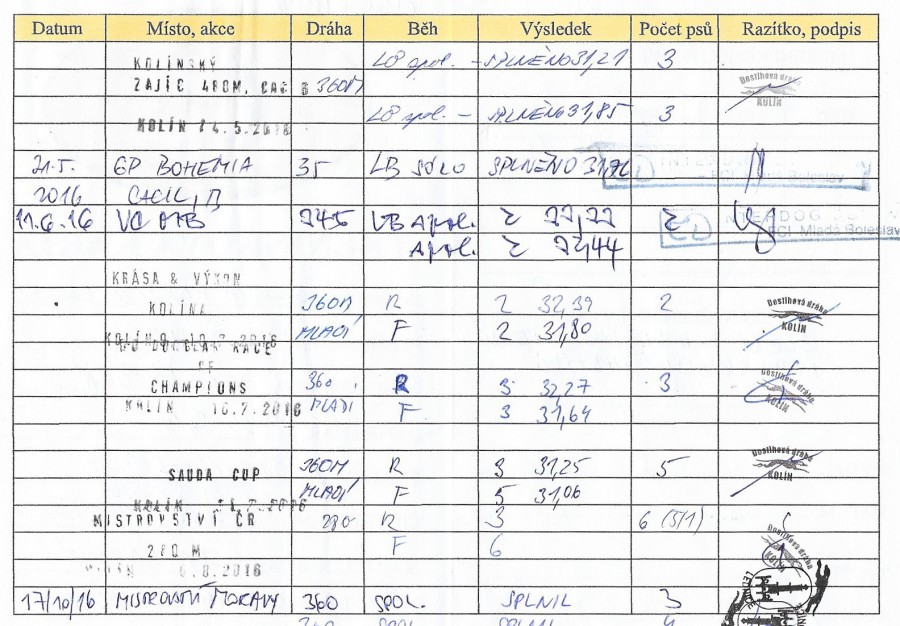 Datum Místo, akce Dráha Běh Výsledek Počet psů Razítko, podpis
KOLÍNSKÝ LB spol. – SPLNĚNO 31,21 3
ZAJÍC 480M, CAC 360M Dostihová dráha KOLÍN
LB spol. – SPLNĚNO 31,85 3
KOLÍN 14.5.2016
21.5. GP BOHEMIA 35 LB SÓLO SPLNĚNO INTERDOG
2016 CACIL, FCI Mladá Boleslav
11.6.16 245 VB A spol. 2 22,22 2 INTERDOG
A spol. 2 22,44 FCI Mladá Boleslav
KRÁSA & VÝKON
KOLÍNA 360M R 2 32,39 2 Dostihová dráha
MLADÍ F 2 31,80 KOLÍN
RACE
OF
CHAMPIONS 360 R 3 32,27 3 Dostihová dráha
KOLÍN 16.7.2016 MLADÍ F 3 31,64 KOLÍN
SAUDA CUP 360M R 3 31,25 5 Dostihová dráha
MLADÍ F 5 31,06 KOLÍN
KOLÍN
MISTROVSTVÍ ČR 280 R 3 6 (5/1)
280 M F 6 Dostihová dráha KOLÍN
6.8.2016
17/10/16 MISTROVSTVÍ MORAVY 360 SPOL. SPLNIL 3
360 SPOL. SPLNIL 4